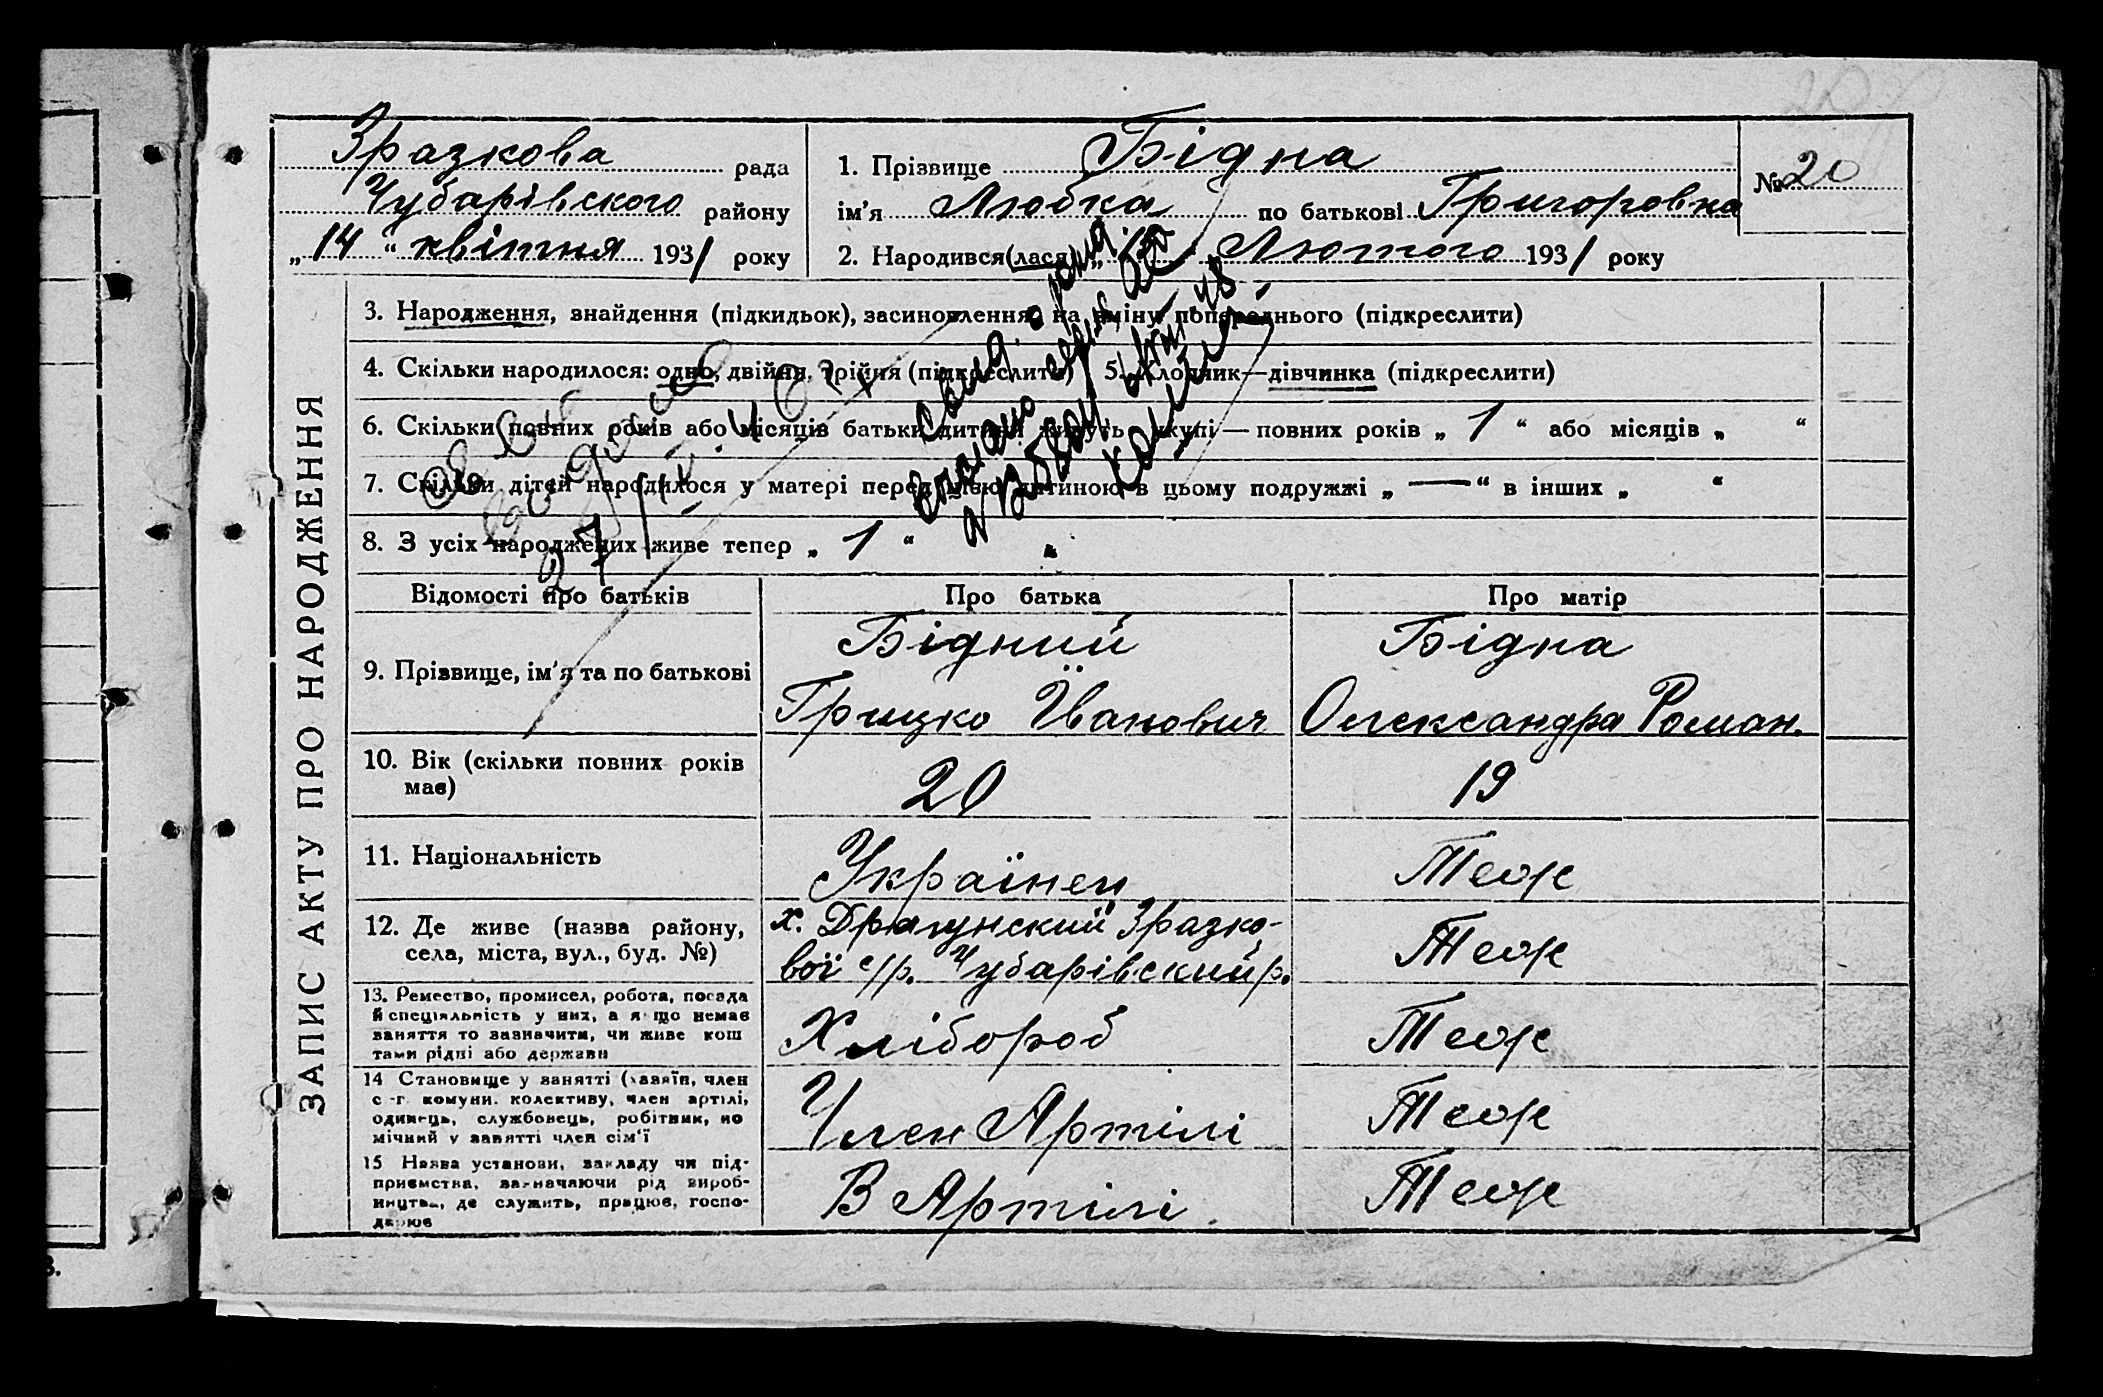 Зразкова рада
Чубарівского району
„14“ квітня 1931 року
1. Прізвище Бідна
ім'я Любка по батькові Григоровна
2. Народився(лася) Лютого 1931 року
№ 20
ЗАПИС АКТУ ПРО НАРОДЖЕННЯ
3. Народження, знайдення (підкидьок), засиновлення, на зміну попереднього (підкреслити)
4. Скільки народилося: одно, двійня, трійня (підкреслити) 5. Хлопчик—дівчинка (підкреслити)
6. Скільки повних років або місяців батьки дитини живуть вкупі — повних років „ 1 “ або місяців „ “
7. Скільки дітей народилося у матері перед цією дитиною в цьому подружжі „ — “ в інших „ “
8. З усіх народжених живе тепер „ 1 “
27/IV
Відомості про батьків Про батька Про матір
9. Прізвище, ім'я та по батькові
Бідний
Грицко Іванович
Бідна
Олександра Роман.
10. Вік (скільки повних років
має)
20
19
11. Національність
Українец
Теж
12. Де живе (назва району,
села, міста, вул., буд. №)
х. Драгунский Зразко-
вої с/р. Чубарівский р.
Теж
13. Ремество, промисел, робота, посада
й спеціяльність у них, а якщо немає
заняття то зазначити, чи живе кош
тами рідні або держави
Хлібороб
Теж
14 Становище у занятті (хазяїн, член
с -г. комуни. колективу, член артілі,
одинець, службовець, робітник, по
мічний у занятті член сім'ї
Член Артілі
Теж
15 Назва установи, закладу чи під-
приємства, зазначаючи рід вироб-
ництва, де служить, працює, госпо-
дарює
В Артілі
Теж